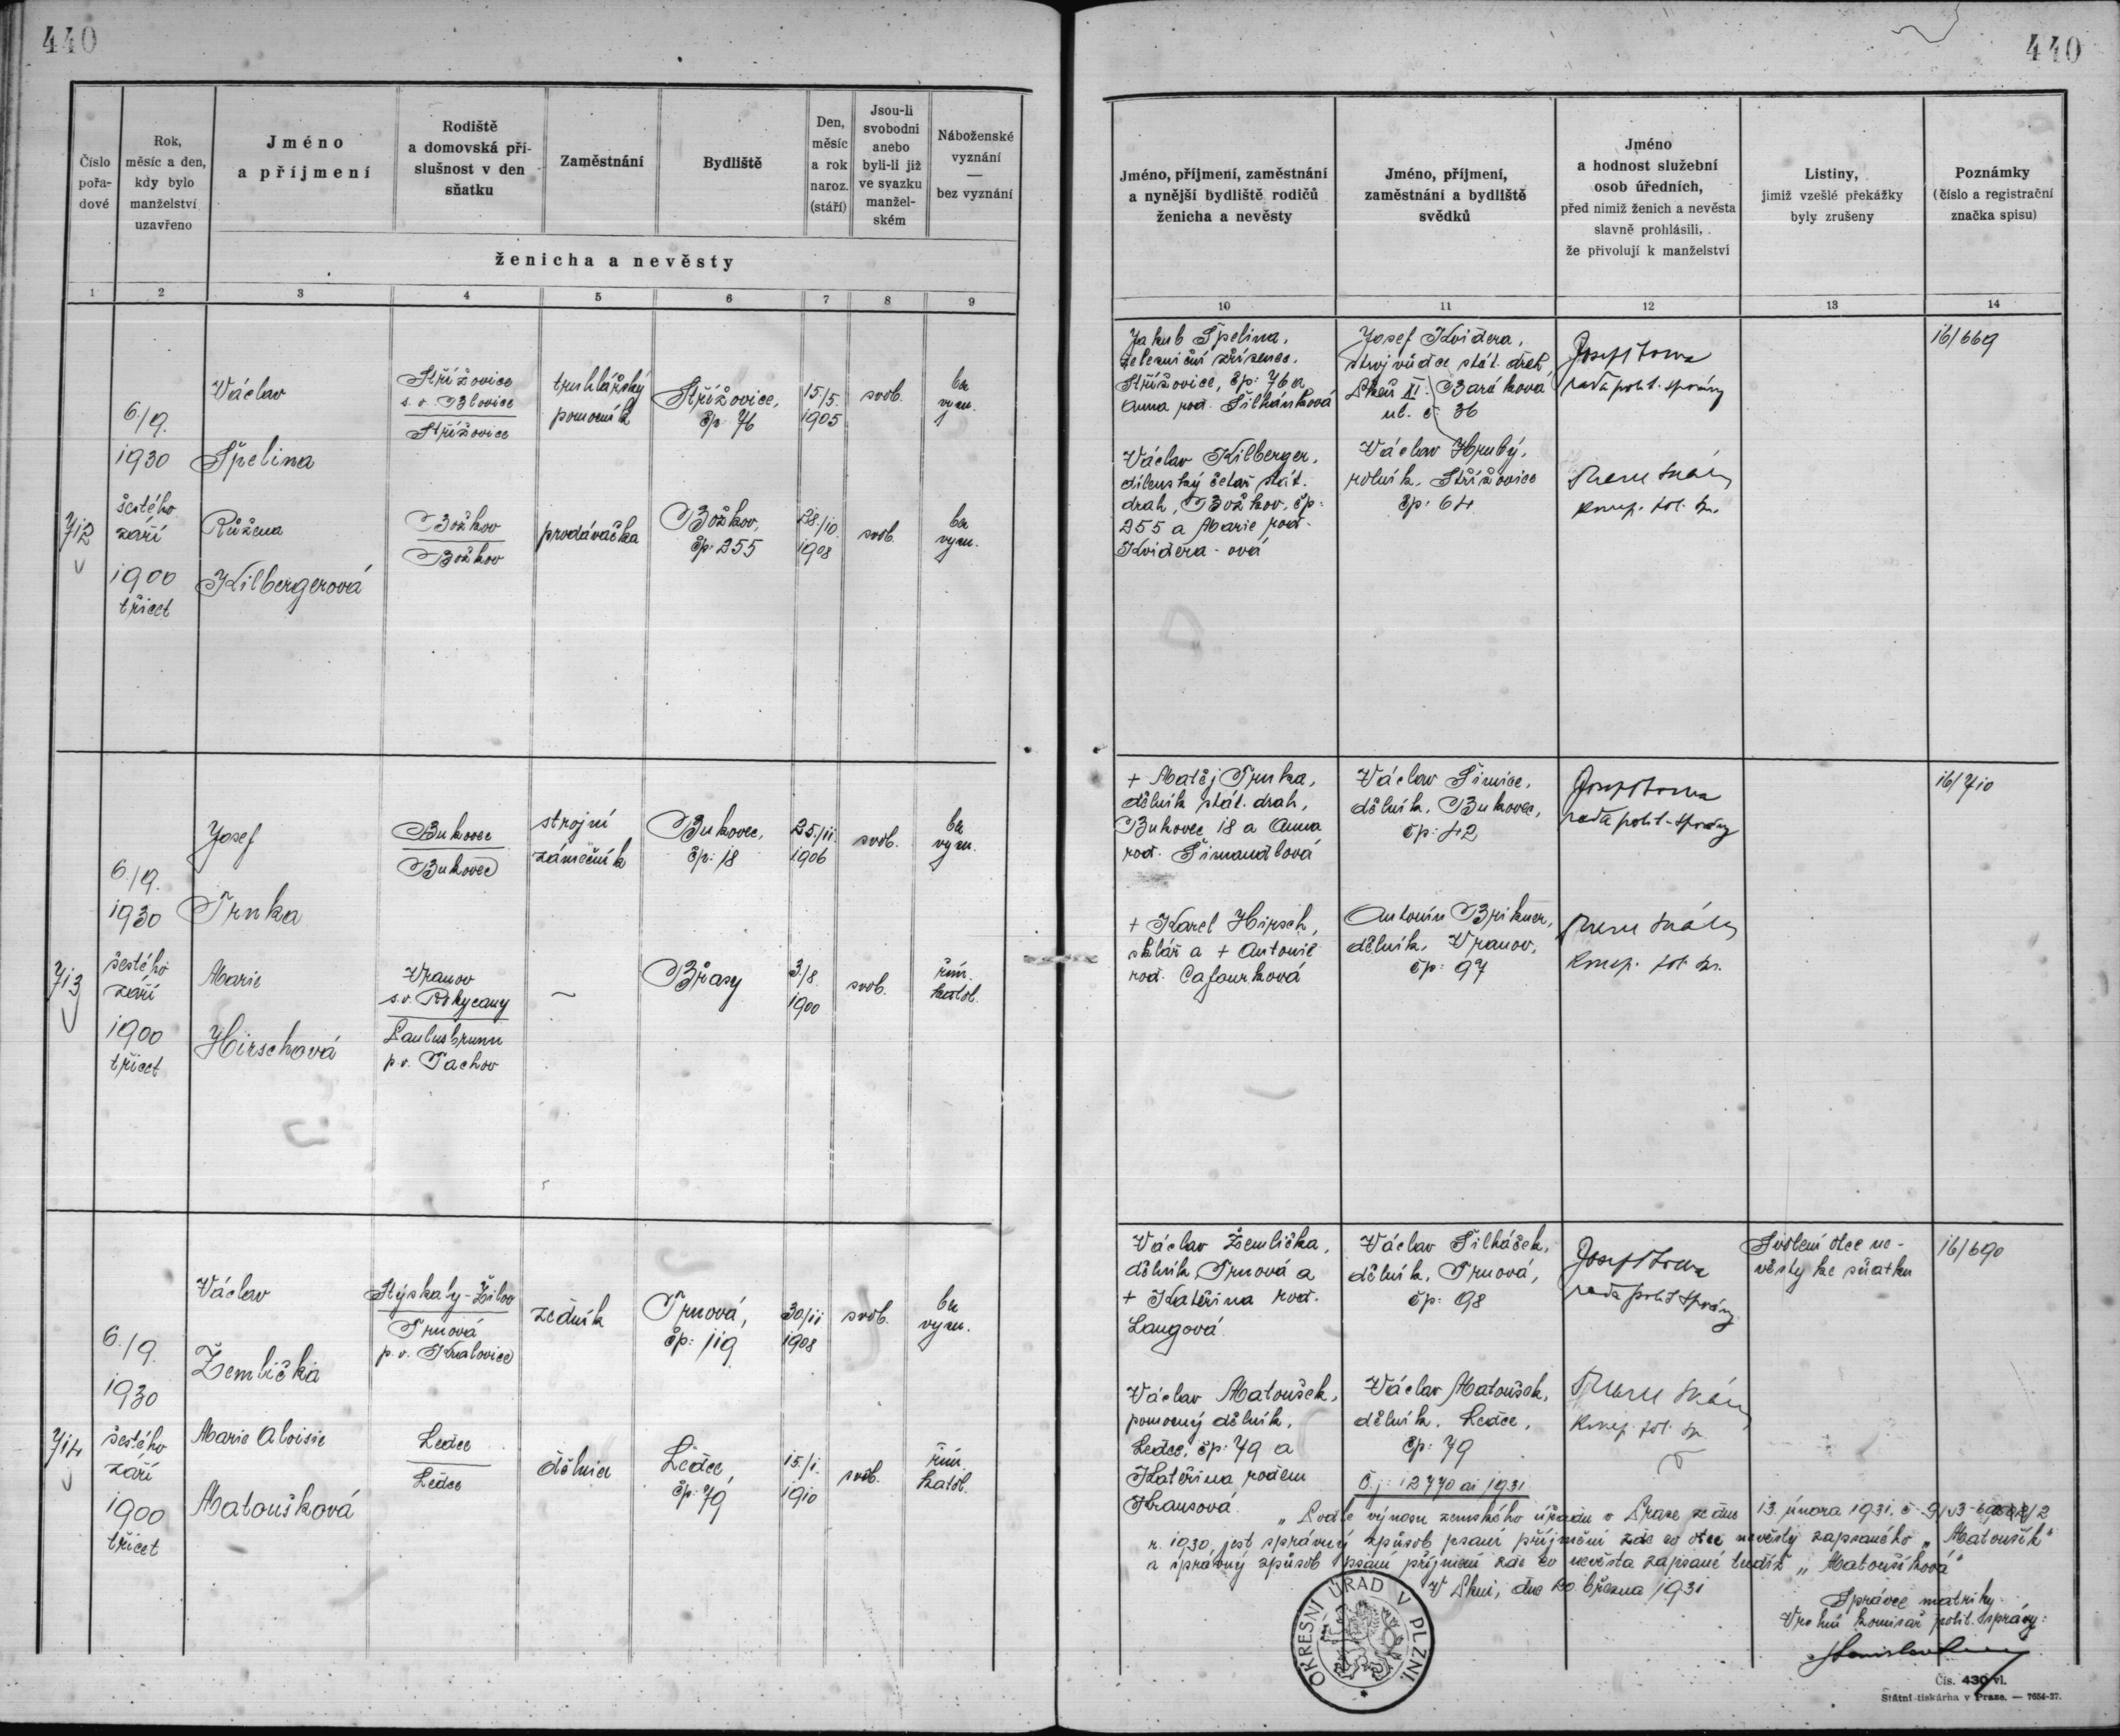 440
440
Číslo
pořa-
dové
Rok,
měsíc a den,
kdy bylo
manželství
uzavřeno
Jméno
a příjmení
Rodiště
a domovská pří-
slušnost v den
sňatku
Zaměstnání
Bydliště
Den,
měsíc
a rok
naroz.
(stáří)
Jsou-li
svobodni
anebo
byli-li již
ve svazku
manžel-
ském
Náboženské
vyznání
—
bez vyznání
ženicha a nevěsty
1 2 3 4 5 6 7 8 9
Jméno, příjmení, zaměstnání
a nynější bydliště rodičů
ženicha a nevěsty
Jméno, příjmení,
zaměstnání a bydliště
svědků
Jméno
a hodnost služební
osob úředních,
před nimiž ženich a nevěsta
slavně prohlásili,
že přivolují k manželství
Listiny,
jimiž vzešlé překážky
byly zrušeny
Poznámky
(číslo a registrační
značka spisu)
10 11 12 13 14
712
6./9.
1930
šestého
září
1900
třicet
Václav
Špelina
Střížovice
s. o. Blovice
Střížovice
truhlářský
pomocník
Střížovice,
čp. 76
15./5.
1905
svob.
bez
vyzn.
Růžena
Kilbergerová
Božkov
Božkov
prodávačka
Božkov,
čp. 255
28./10.
1908
svob.
bez
vyzn.
Jakub Špelina,
železniční zřízenec,
Střížovice, čp: 76 a
Anna roz. Šilhánková
Václav Kilberger,
dílenský četař stát.
drah, Božkov, čp:
255 a Marie roz.
Kviderová
Josef Kvidera,
strojvůdce stát. drah,
Plzeň XI. Baráková
ul. č. 36
Václav Hrubý,
rolník, Střížovice
čp. 64
rada polit. správy
16/669
713
6./9.
1930
šestého
září
1900
třicet
Josef
Trnka
Bukovec
Bukovec
strojní
zámečník
Bukovec,
čp: 18
25./11.
1906
svob.
bez
vyzn.
Marie
Hirschová
Vranov
s. o. Rokycany
Paulusbrunn
p. o. Tachov
~
Břasy
3./8.
1900
svob.
řím.
katol.
+ Matěj Trnka,
dělník stát. drah,
Bukovec 18 a Anna
roz. Šimandlová
+ Karel Hirsch,
sklář a + Antonie
roz. Cafourková
Václav Šimice,
dělník, Bukovec,
čp: 42
Antonín Brikner,
dělník, Vranov,
čp: 97
rada polit. správy
16/710
714
6./9.
1930
šestého
září
1900
třicet
Václav
Žemlička
Stýskaly-Žilov
Trnová
p. o. Kralovice
zedník
Trnová,
čp: 119
30/11
1908
svob.
bez
vyzn.
Marie Aloisie
Matoušková
Ledce
Ledce
dělnice
Ledce,
čp: 79
15./1.
1910
svob.
řím.
katol.
Václav Žemlička,
dělník, Trnová a
+ Kateřina roz.
Langová
Václav Matoušek,
pomocný dělník,
Ledce, čp: 79 a
Kateřina rodem
Krausová
Václav Šilháček,
dělník, Trnová,
čp: 98
Václav Matoušek,
dělník, Ledce,
čp: 79
rada polit. správy
Svolení otce ne-
věsty ke sňatku
16/690
Č. j: 12770 ai 1931
„Podle výnosu zemského úřadu v Praze ze dne 13. února 1931, č.
r. 1930, jest správný způsob psaní příjmení zde co otec nevěsty zapsaného „Matoušík“
a správný způsob psaní příjmení zde co nevěsta zapsané tudíž „Matoušíková“
V Plzni, dne 20. března 1931
Správce matriky
Vrchní komisař polit. správy:
OKRESNÍ ÚŘAD V PLZNI.
Čís. 430/vl.
Státní tiskárna v Praze. — 7654-27.